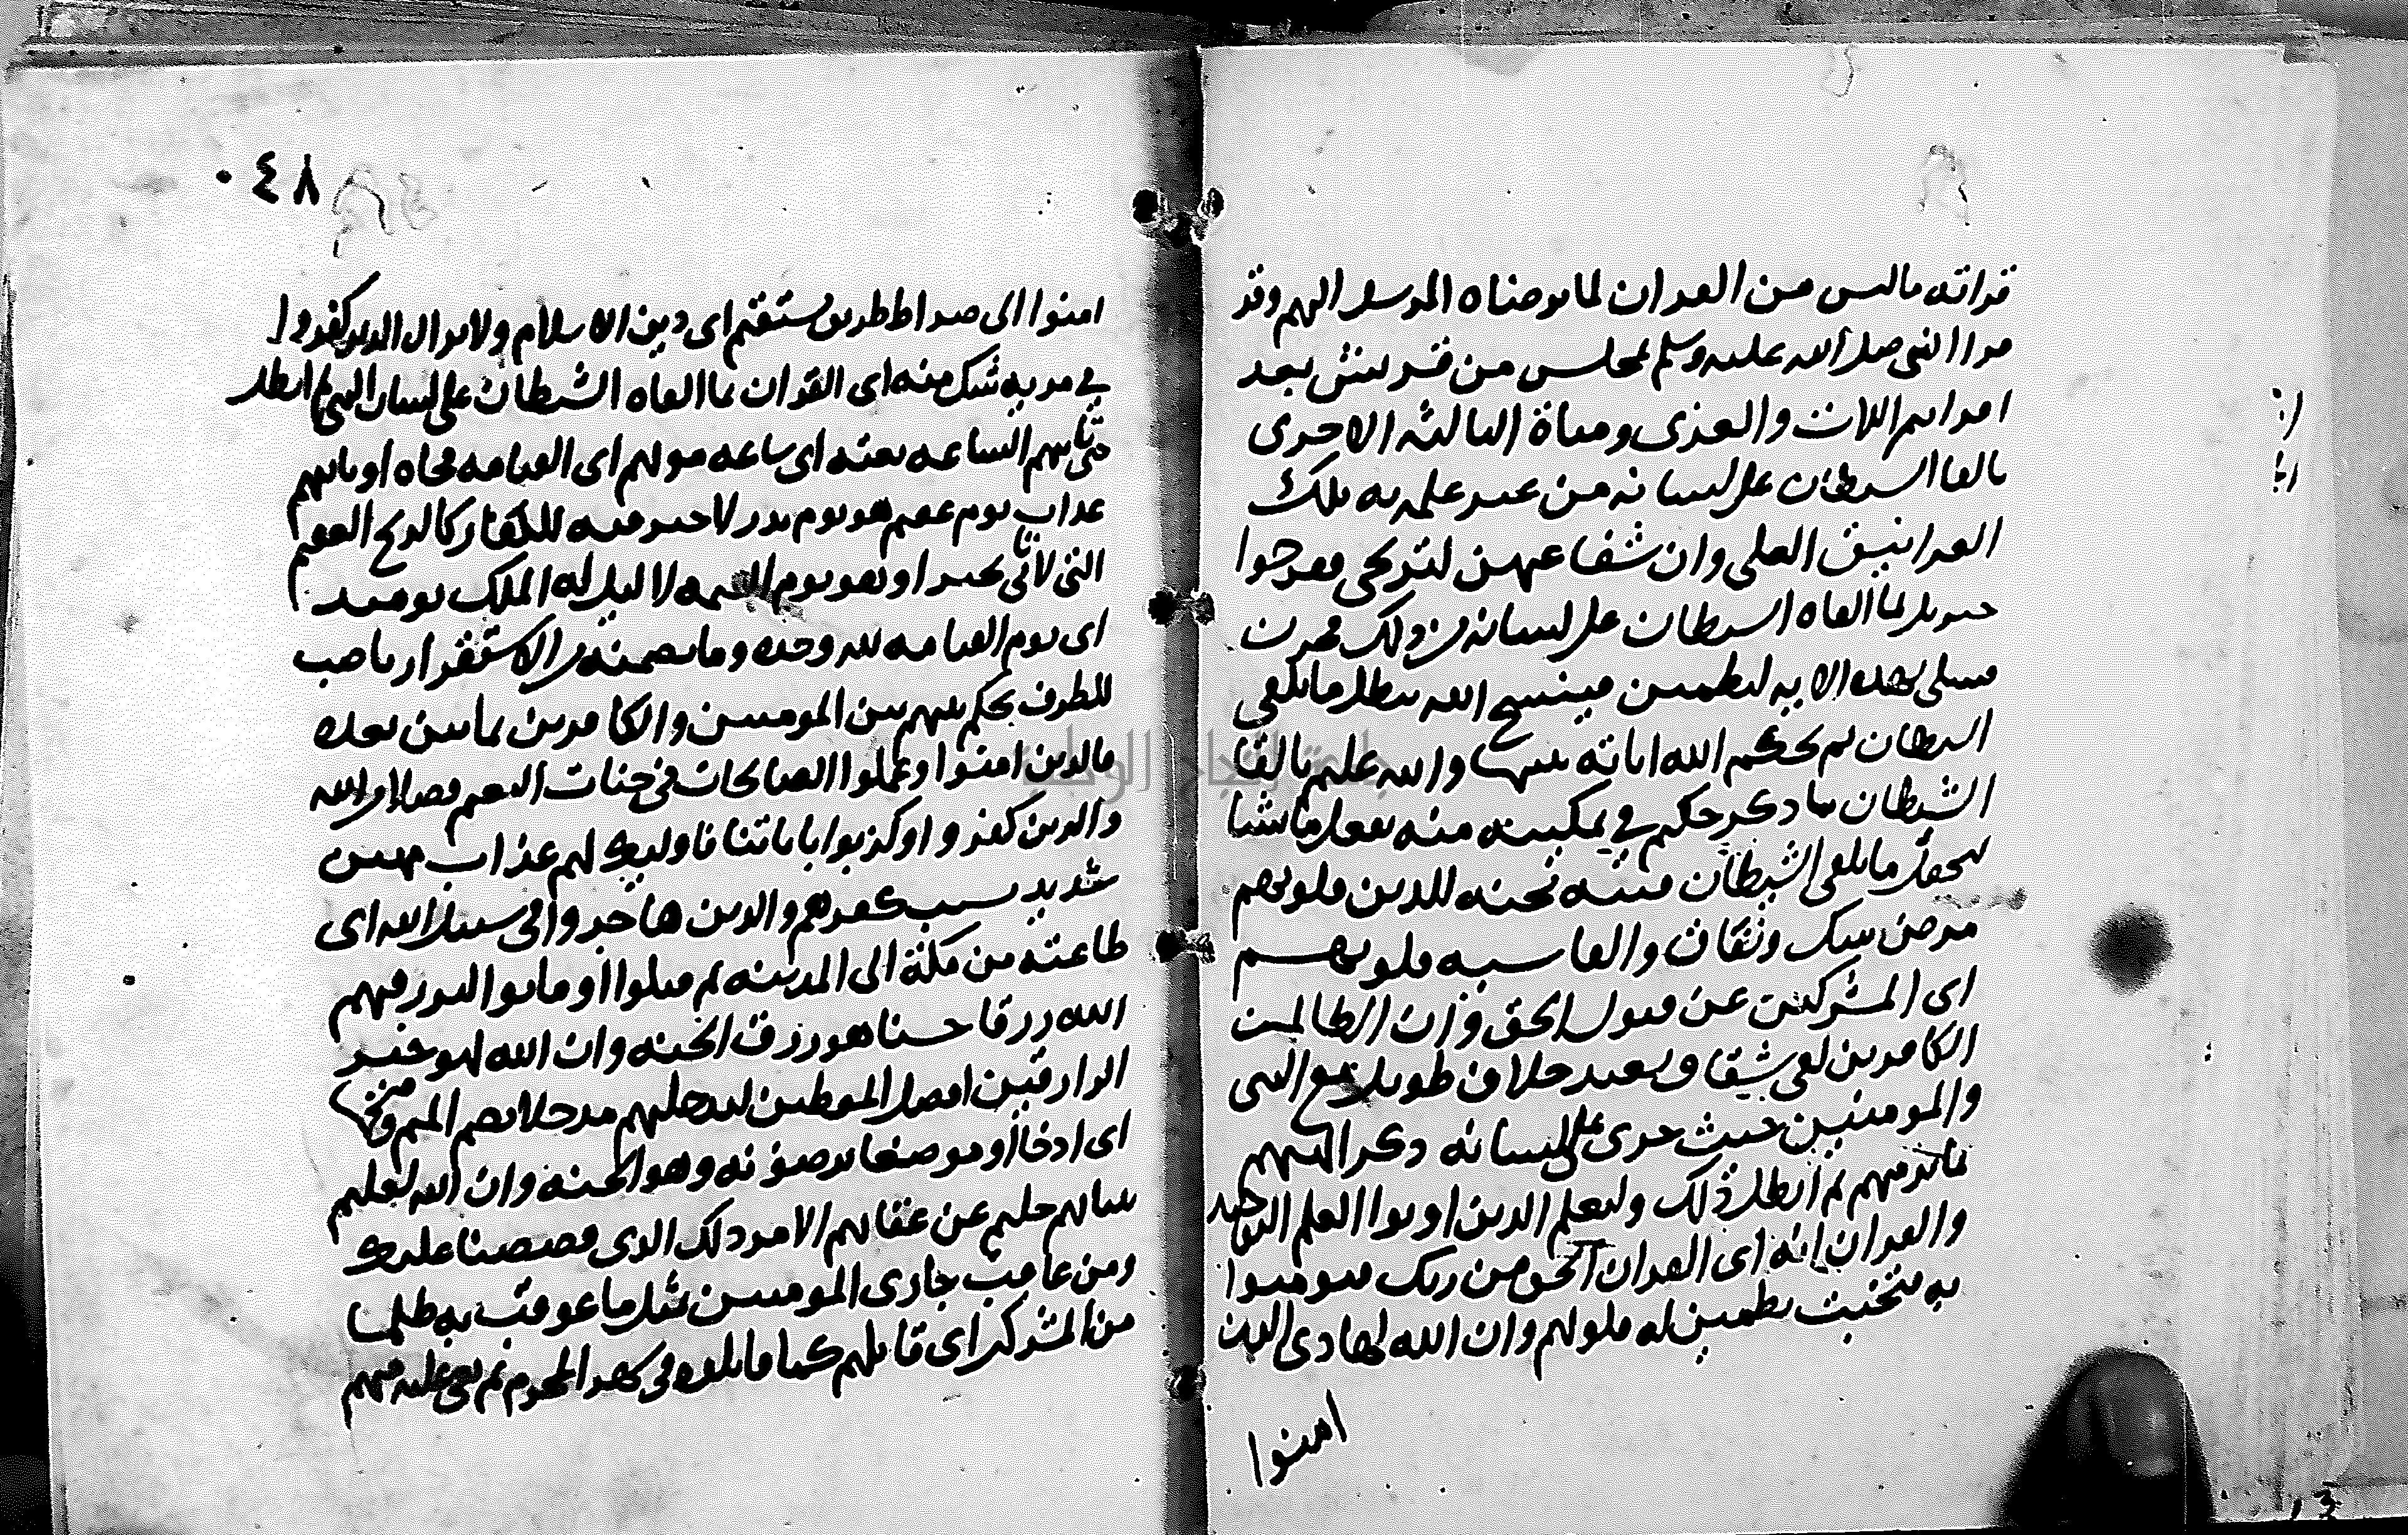 قراته ما ليس من القران لما يرضاه المرسل اليهم وقد
قرا النبي صلى الله عليه وسلم بمجلس من قريش بعد
افرايتم اللات والعزى ومناة الثالثة الاخرى
بالقا الشيطان على لسانه من غير علمه به تلك
الغرانيق العلى وان شفاعتهن لترتجى ففرحوا
جبريل لما القاه الشيطان على لسانه من ذلك فحزن
فسلى بهذه الايه ليطمين فينسخ الله يبطل ما يلقي
الشيطان ثم يحكم الله اياته يثبتها والله عليم بالقا
الشيطان ما ذكر حكيم في تمكينه منه يفعل ما يشا
ليجعل ما يلقى الشيطان فتنه محنه للذين في قلوبهم
مرض شك ونفاق والقاسيه قلوبهم
اى المشركين عن قبول الحق وان الظالمين
الكافرين لفي شقاق بعيد خلاف طويل مع النبي
والمومنين حيث جرى على لسانه ذكر الهتهم
بما يرضيهم ثم ابطل ذلك وليعلم الذين اوتوا العلم التوحيد
والقران انه اى القران الحق من ربك فيومنوا
به فتخبت تطمين له قلوبهم وان الله لهادى الذين
امنوا
٤٨
امنوا الى صراط طريق مستقيم اى دين الاسلام ولا يزال الذين كفروا
في مريه شك منه اى القران بما القاه الشيطان على لسان النبي ثم ابطل
حتى تاتيهم الساعه بغته اى ساعه موتهم اى القيامه فجاه او ياتيهم
عذاب يوم عقيم هو يوم بدر لا خير فيه للكفار كالريح العقيم
التى لا تاتى بخير او هو يوم القيمه لا ليل له الملك يوميذ
اى يوم القيامه لله وحده وما تضمنه من الاستقرار ناصب
للظرف يحكم بينهم بين المومنين والكافرين بما بين بعده
فالذين امنوا وعملوا الصالحات في جنات النعيم فضلا من الله
والذين كفروا وكذبوا باياتنا فاوليك لهم عذاب مهين
شديد بسبب كفرهم والذين هاجروا في سبيل الله اى
طاعته من مكة الى المدينه ثم قتلوا او ماتوا ليرزقنهم
الله رزقا حسنا هو رزق الجنه وان الله لهو خير
الرازقين افضل المعطين ليدخلنهم مدخلا بضم الميم وفتحها
اى ادخالا او موضعا يرضونه وهو الجنه وان الله لعليم
بنياتهم حليم عن عقابهم الامر ذلك الذى قصصنا عليك
ومن عاقب جازى المومنين بمثل ما عوقب به ظلما
من المشركين اى قاتلهم كما قاتلوه في شهر المحرم ثم بغى عليه منهم